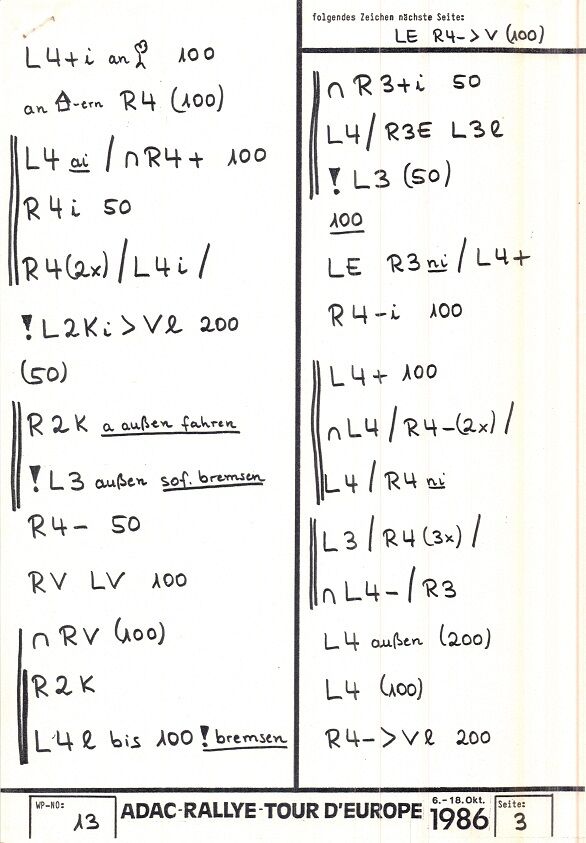 L4+i an 100
an -ern R4 (100)
L4 ai / ∩R4+ 100
R4i 50
R4(2x)/L4i/
!L2Ki>Vl 200
(50)
R2K a außen fahren
!L3 außen sof. bremsen
R4- 50
RV LV 100
∩ RV (100)
R2K
L4l bis 100 ! bremsen
folgendes Zeichen nächste Seite:
LE R4->V (100)
∩ R3+i 50
L4/R3E L3l
!L3 (50)
100
LE R3ni/L4+
R4-i 100
L4+ 100
∩L4/R4-(2x)/
L4/R4 ni
L3/R4(3x)/
∩L4-/R3
L4 außen (200)
L4 (100)
R4->Vl 200
WP-NO: 13
ADAC-RALLYE-TOUR D'EUROPE
6.-18.Okt. 1986
Seite: 3